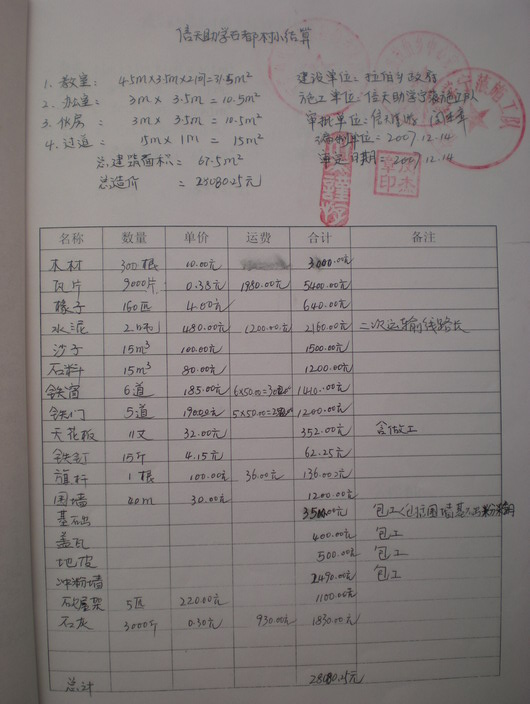 信天助学石都村小结算
1. 教室: 4.5m×3.5m×2间=31.5m²
建设单位: 拉伯乡政府
2. 办公室: 3m × 3.5m = 10.5m²
施工单位: 信天助学宁蒗施工队
3. 伙房: 3m × 3.5m = 10.5m²
审批单位: 信天
4. 过道: 15m × 1m = 15m²
编制单位: 2007.12.14
总建筑面积: 67.5m²
审定日期: 2007.12.14
总造价 = 28080.25元
名称 数量 单价 运费 合计 备注
木材 300根 10.00元 3000.00元
瓦片 9000片 0.38元 1980.00元 5400.00元
椽子 160匹 4.00元 640.00元
水泥 480.00元 1200.00元 2160.00元 二次运输线路长
沙子 15m³ 100.00元 1500.00元
石料 15m³ 80.00元 1200.00元
铁窗 6道 185.00元 6×50.00=300 1410.00元
铁门 5道 190.00元 5×50.00=250 1200.00元
天花板 11丈 32.00元 352.00元 含做工
铁钉 15斤 4.15元 62.25元
旗杆 1根 100.00元 36.00元 136.00元
围墙 40m 30.00元 1200.00元
基石出 3500.00元 包工(包括围墙基
盖瓦 400.00元 包工
地皮 500.00元 包工
冲粉墙 2490.00元 包工
屋架 5匹 220.00元 1100.00元
石灰 3000斤 0.30元 930.00元 1830.00元
总计 28080.25元